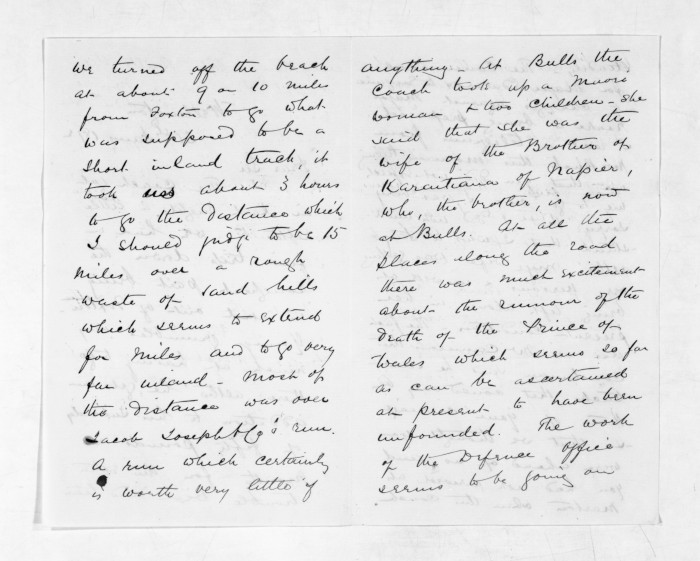 we turned off the beach
at about 9 or 10 miles
from Foxton to go what
was supposed to be a
short inland track, it
took us about 3 hours
to go the distance which
I should judge to be 15
miles over a rough
waste of sand hills
which seems to extend
for miles and to go very
far inland - most of
the distance was over
Jacob Joseph & Co's run.
A run which certainly
is worth very little if
anything - At Bulls the
Coach took up a Maori
woman & two children - She
said that she was the
wife of the Brother of
Karaitiana of Napier,
who, the brother, is now
at Bulls. At all the
places along the road
there was much excitement
about the rumour of the
death of the Prince of
Wales which seems so far
as can be ascertained
at present to have been
unfounded. The work
of the Defence office
seems to be going on